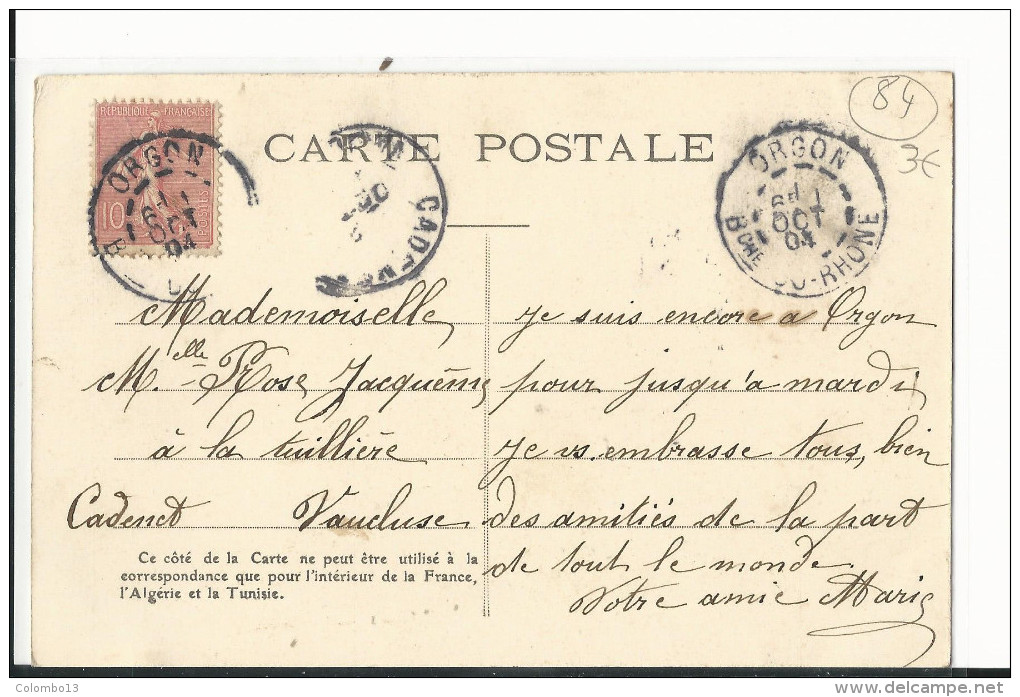 84
3€
RÉPUBLIQUE FRANÇAISE
10
POSTES
CARTE POSTALE
ORGON
OCT
04
B
ORGON
6
OCT
04
BCHE DU-RHÔNE
Mademoiselle,
M.elle Rose Jacquème
à la tuillière
Cadenet Vaucluse
Ce côté de la Carte ne peut être utilisé à la
correspondance que pour l'intérieur de la France,
l'Algérie et la Tunisie.
Je suis encore a Orgon
pour jusqu'a mardi
Je vs. embrasse tous, bien
des amitiés de la part
de tout le monde
Votre amie Marie
Colombo13
www.delcampe.net